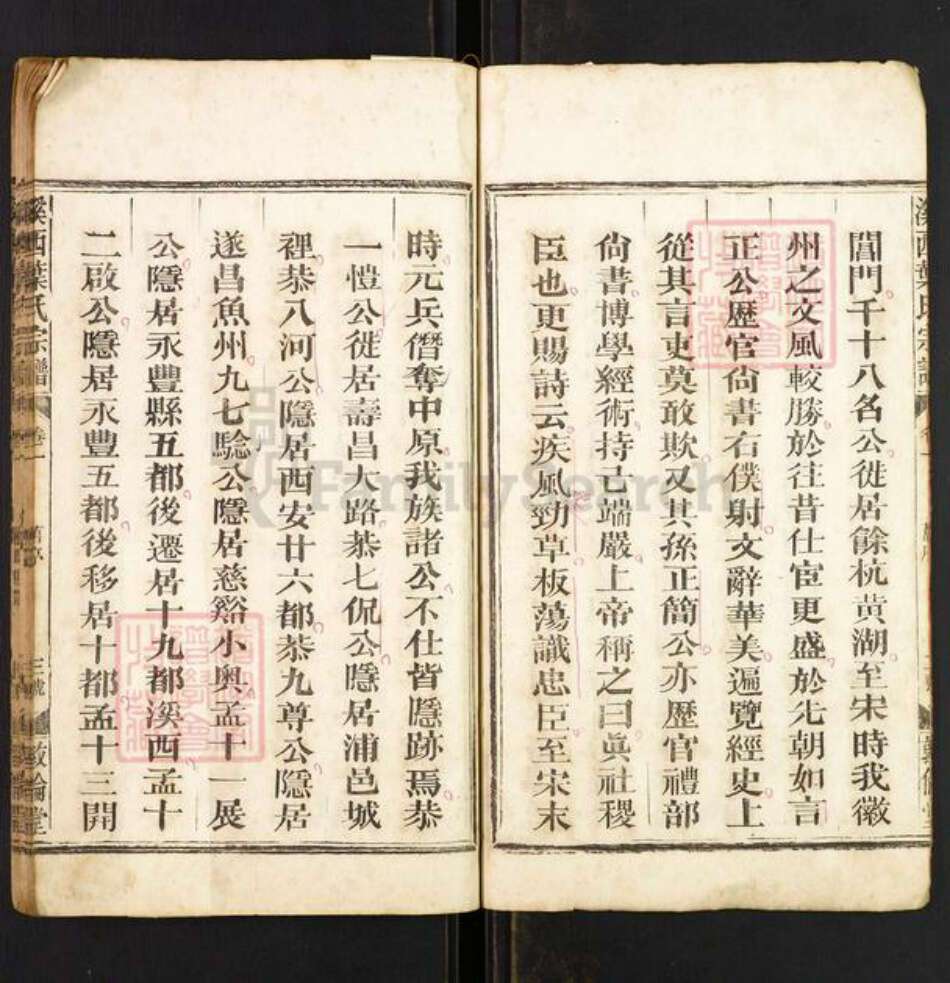 閶門千十八名公徙居餘杭黃湖至宋時我徽
州之文風較勝於往昔仕宦更盛於先朝如言
正公歷官尚書右僕射文辭華美遍覽經史上
從其言吏莫敢欺又其孫正簡公亦歷官禮部
尚書博學經術持己端嚴上帝稱之曰眞社稷
臣也更賜詩云疾風勁草板蕩識忠臣至宋末
時元兵僭奪中原我族諸公不仕皆隱跡焉恭
一愷公徙居壽昌大路恭七侃公隱居浦邑城
裡恭八河公隱居西安廿六都恭九尊公隱居
遂昌魚州九七騐公隱居慈谿小奥孟十一展
公隱居永豐縣五都後遷居十九都溪西孟十
二啟公隱居永豐五都後移居十都孟十三開
溪西葉氏宗譜 卷一 三號 敘倫堂
FamilySearch